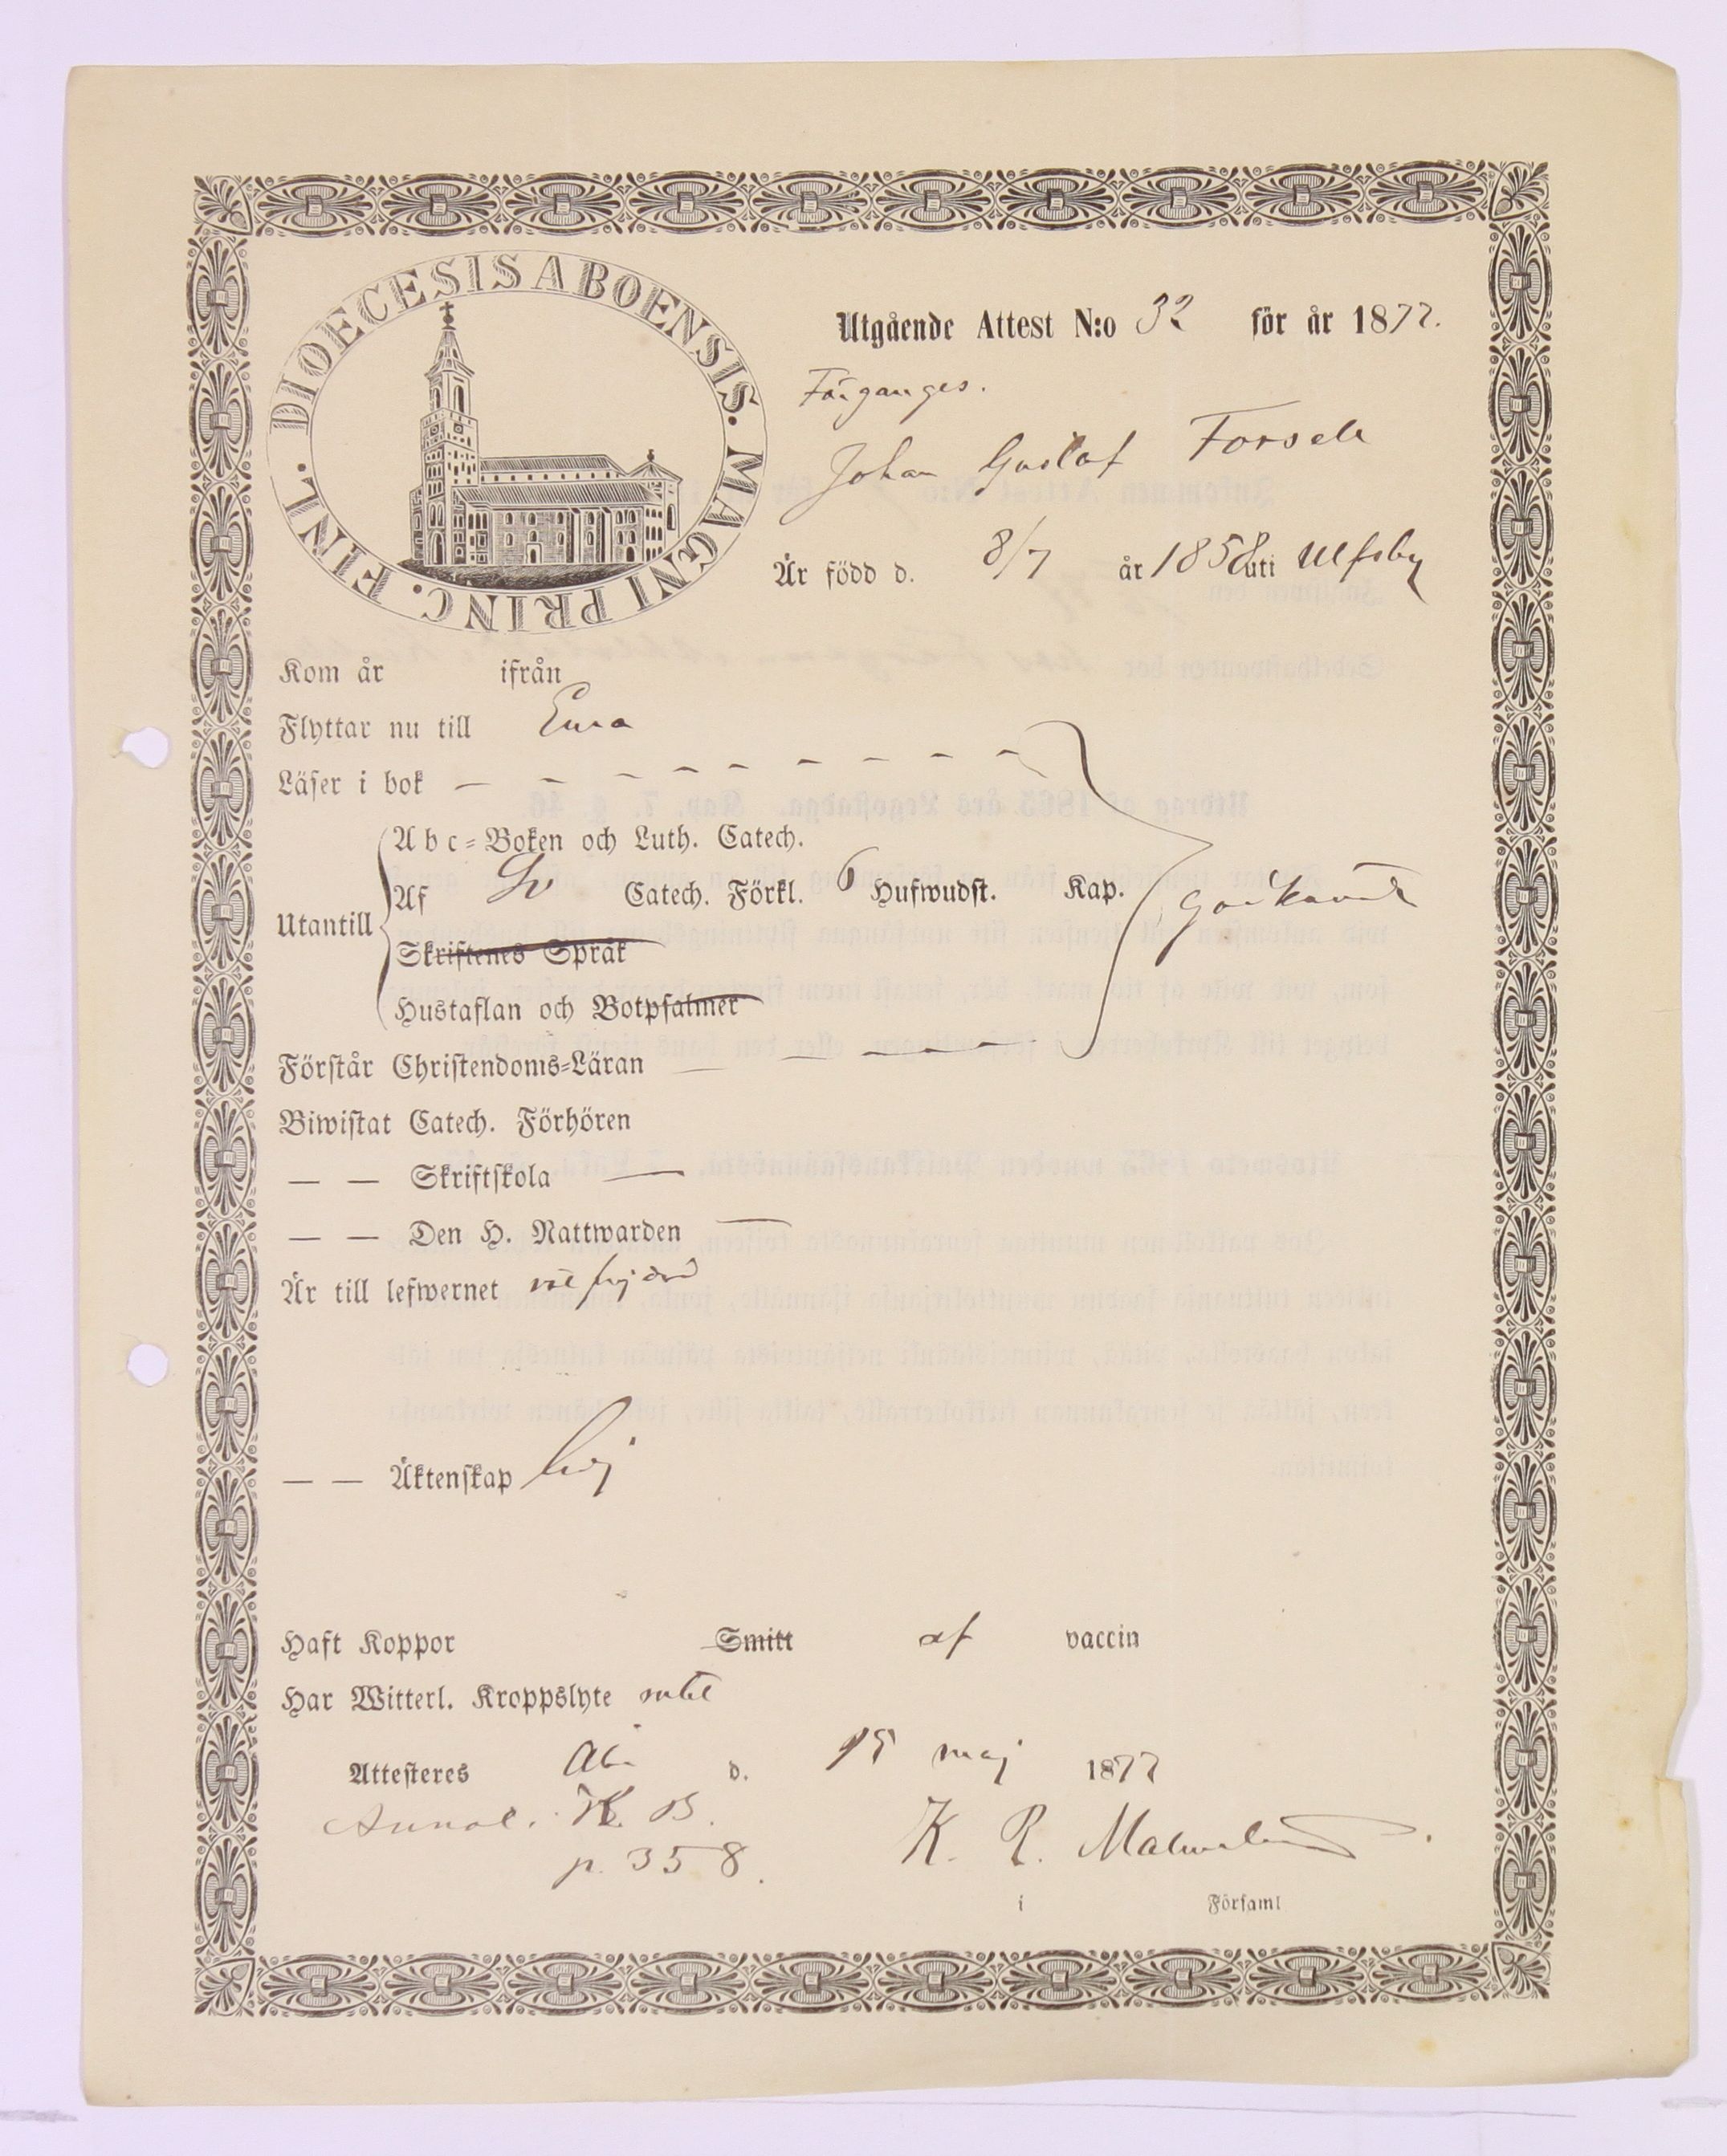 DIOECESIS ABOENSIS. MAGNI PRINC. FINL.
Utgående Attest N:o 32 för år 1877.
Johan Gustaf Forsell
Är född d. 8/7 år 1858 uti Ulfsby
Kom år ifrån
Flyttar nu till Eura
Läser i bok — — — — — — — — —
Abc=Boken och Luth. Catech.
Utantill Af Sv Catech. Förkl. 6 Hufwudst. Kap.
Skriftenes Språk
Hustaflan och Botpsalmer
Förstår Christendoms=Läran — — — — — —
Biwistat Catech. Förhören
— — Skriftskola —
— — Den H. Nattwarden —
Är till lefwernet välfrejdad
— — Äktenskap frej
Haft Koppor Smitt af vaccin
Har Witterl. Kroppslyte intet
Attesteres Åbo d. 15 maj 1877
K. B.
p. 358.
K. R.
i Församl